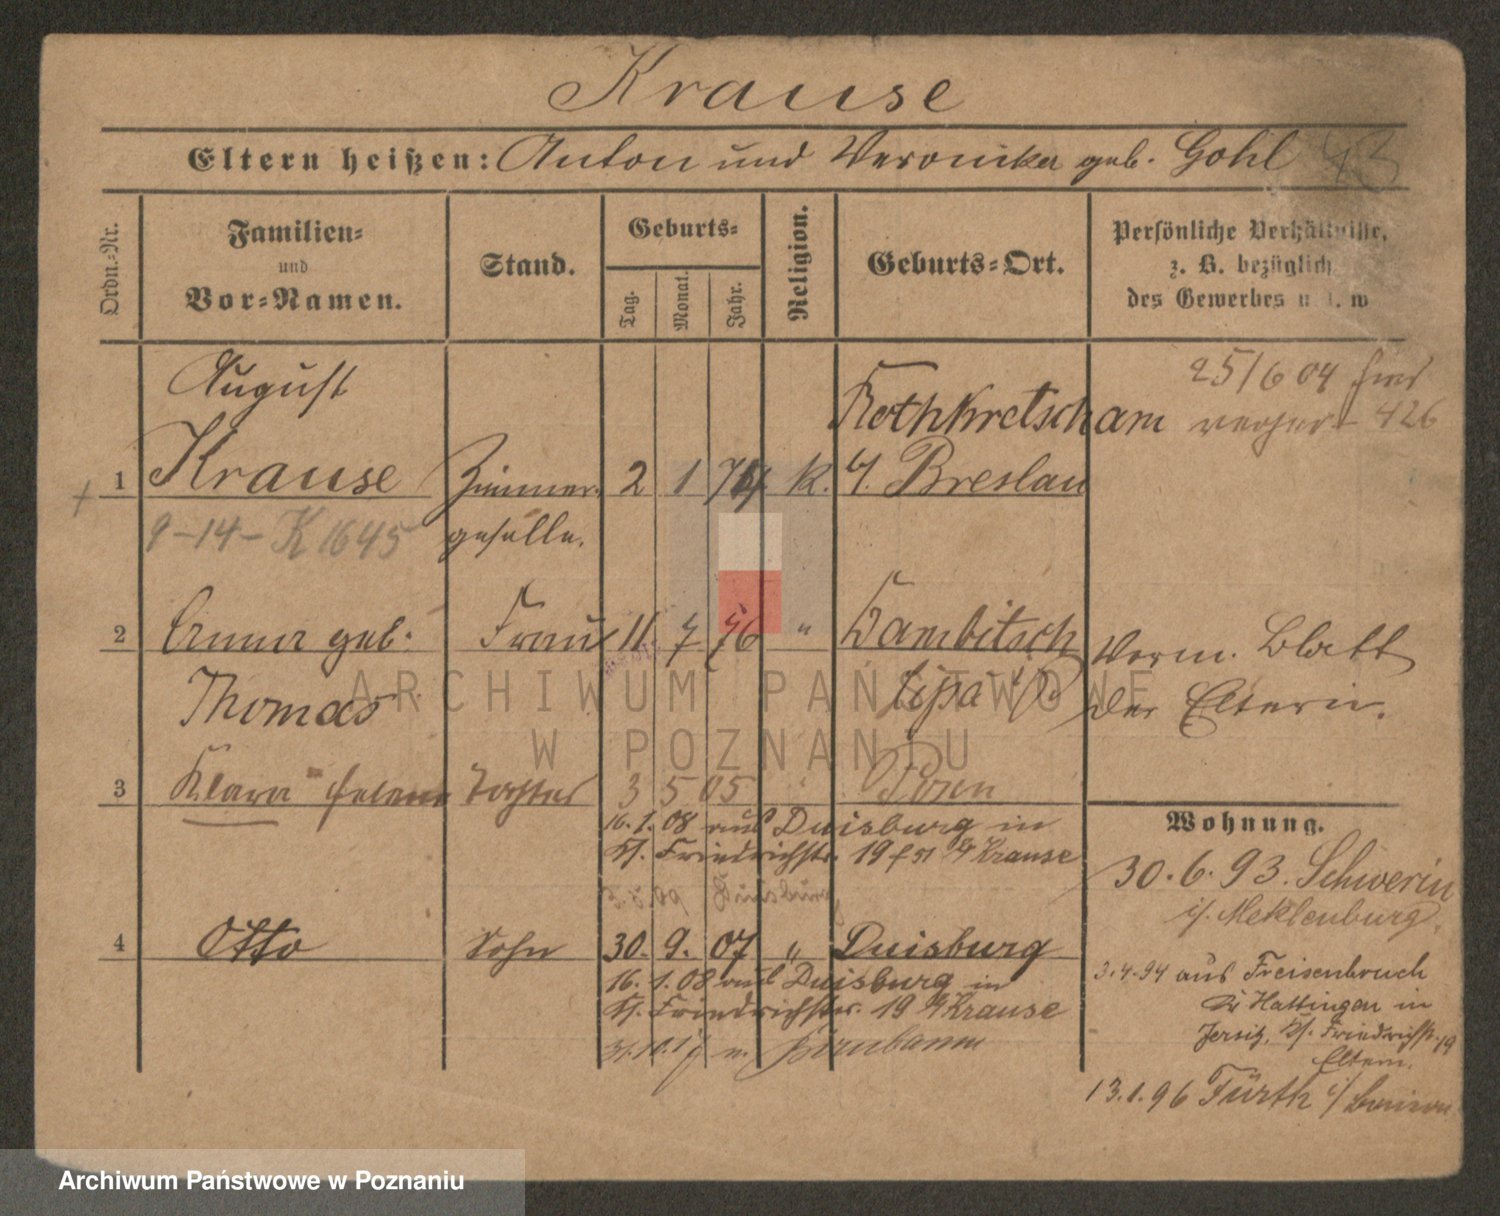 Krause
Eltern heißen: Anton und Veronika geb. Gohl
Ordn.-Nr.
Familien-
und
Vor-Namen.
Stand.
Geburts-
Tag.
Monat.
Jahr.
Religion.
Geburts-Ort.
Persönliche Verhältnisse,
z. B. bezüglich
des Gewerbes u. s. w
August
1 Krause Zimmer- 2 1 74 k. Rothkretscham
geselle. Breslau
9-14- K 1645
25/6 04
426
2 Anna geb. Frau 11. 7 76 " Kambitsch
Thomas Posen
Verm. Blatt
der Eltern.
3 Klara Helene Tochter 3 5 05 " Posen
16. 1. 08 aus Duisburg in
Kl. Friedrichstr. 19 Krause
4 Otto Sohn 30. 9. 07 " Duisburg
16. 1. 08 aus Duisburg in
Kl. Friedrichstr. 19 Krause
31.10.17 n. Birnbaum
Wohnung.
30. 6. 93. Schwerin
i/. Meklenburg.
3.4.94 aus Freisenbruch
Kr Hattingen in
Jersitz, Kl. Friedrichst. 19
Eltern.
13.1.96 Fürth i/
ARCHIWUM PAŃSTWOWE
W POZNANIU
Archiwum Państwowe w Poznaniu